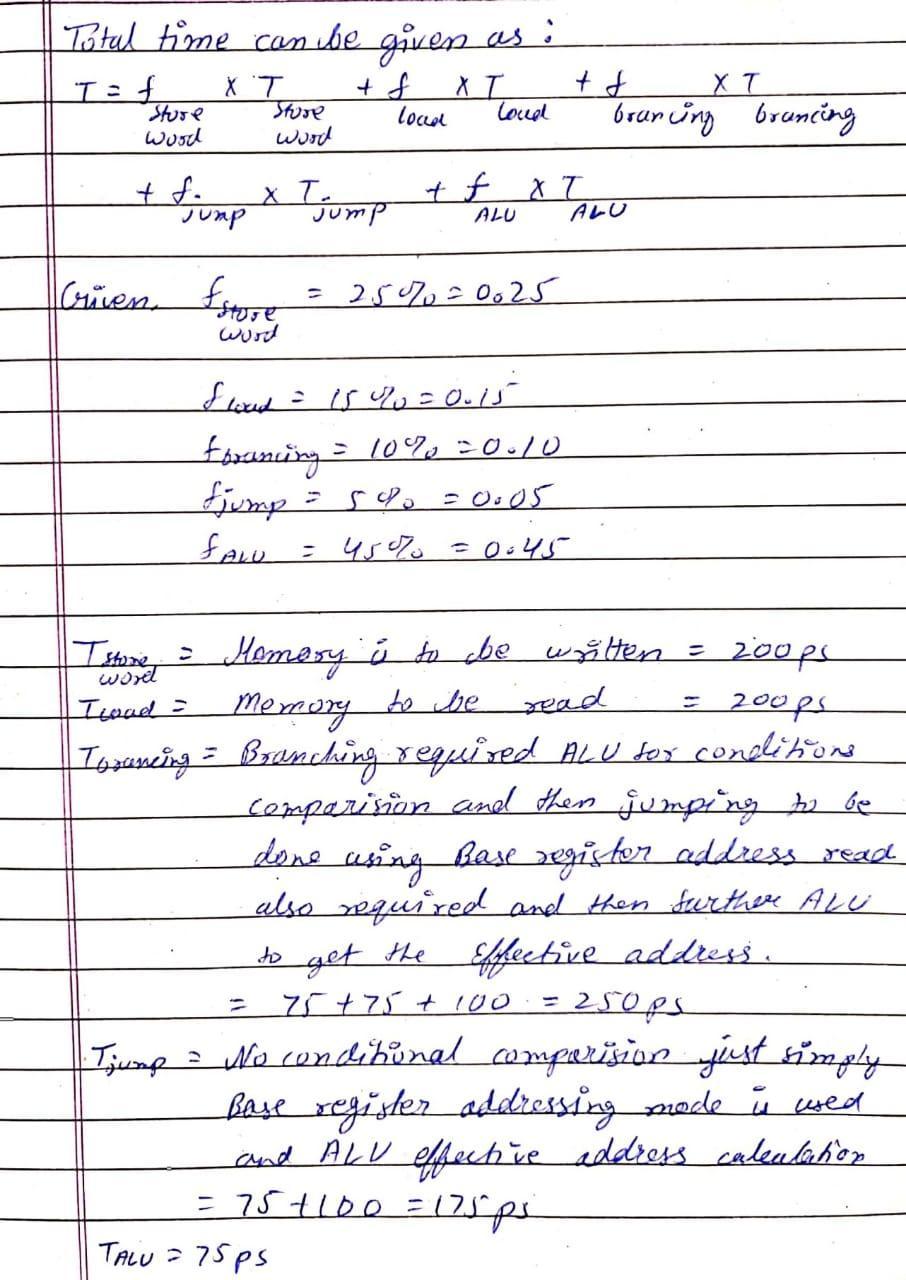 Total time can be given as :
T = f x T + f x T + f x T
store word store word load load brancing brancing
+ f jump x T jump + f ALU x T ALU
Given, f store word = 25% = 0.25
f load = 15% = 0.15
f brancing = 10% = 0.10
f jump = 5% = 0.05
f ALU = 45% = 0.45
T store word = Memory is to be written = 200ps
T load = Memory to be read = 200ps
T brancing = Branching required ALU for conditions
comparision and then jumping to be
done using Base register address read
also required and then further ALU
to get the Effective address.
= 75 + 75 + 100 = 250ps
T jump = No conditional comparision just simply
Base register addressing mode is used
and ALU effective address calculation
= 75 + 100 = 175 ps
T ALU = 75 ps